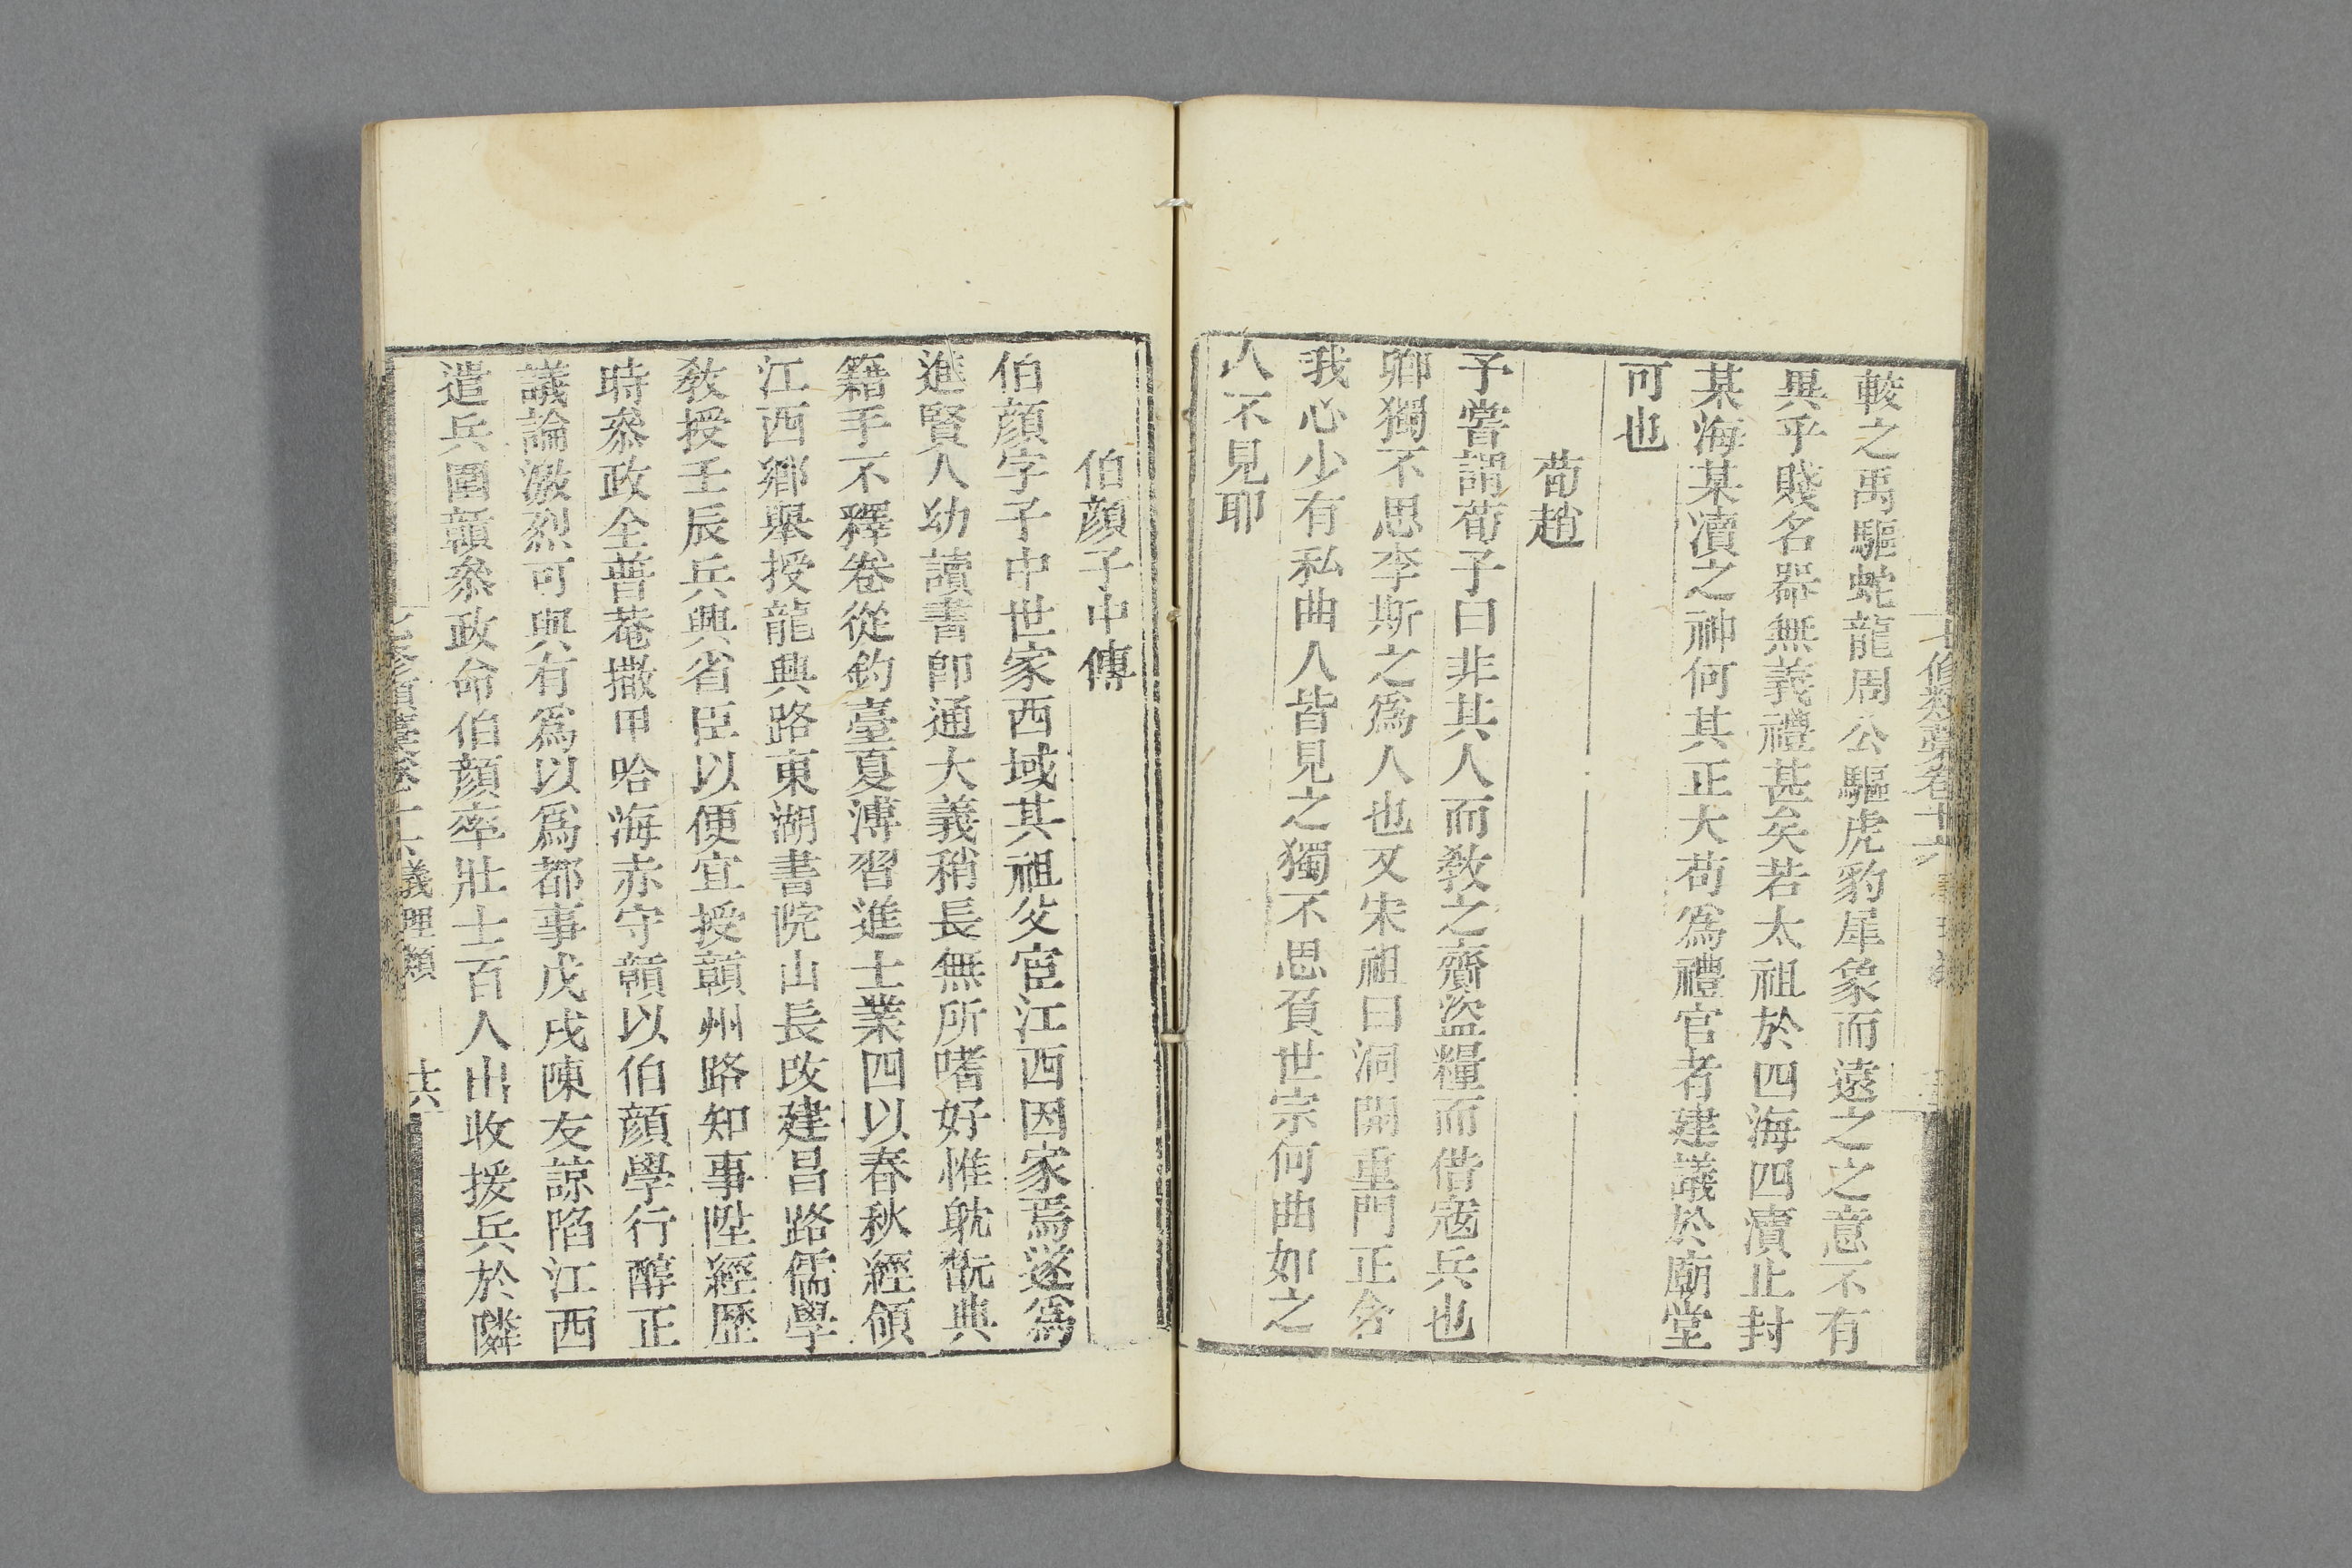 較之禹驅蛇龍周公驅虎豹犀象而遠之之意不有
異乎賤名器無義禮甚矣若太祖於四海四瀆止封
某海某瀆之神何其正大苟爲禮官者建議於廟堂
可也
荀趙
予嘗謂荀子曰非其人而敎之齎盜糧而借寇兵也
卿獨不思李斯之爲人也又宋祖曰洞開重門正如
我心少有私曲人皆見之獨不思負世宗何曲如之
人不見耶
伯顔子中傳
伯顔字子中世家西域其祖父宦江西因家焉遂爲
進賢人幼讀書卽通大義稍長無所嗜好惟躭翫典
籍手不釋卷從釣臺夏溥習進士業四以春秋經領
江西鄕舉授龍興路東湖書院山長改建昌路儒學
敎授壬辰兵興省臣以便宜授贛州路知事陞經歷
時叅政全普菴撒甲哈海赤守贛以伯顔學行醇正
議論激烈可與有爲以爲都事戊戌陳友諒陷江西
遣兵圍贛叅政命伯顔率壯士百人出收援兵於隣
義理類
十六